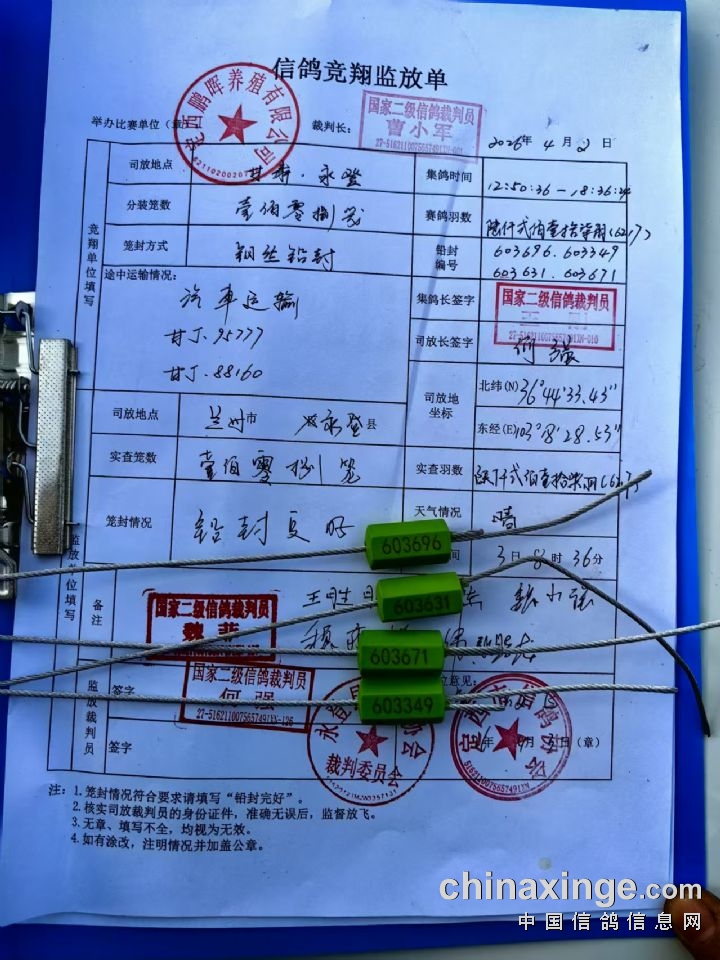 信鸽竞翔监放单
举办比赛单位（章）
定西鹏晖养殖有限公司
裁判长：
国家二级信鸽裁判员
曹小军
27-5162110075657491XN-001
2026年4月2日
竞翔单位填写
司放地点
甘肃·永登
集鸽时间
12:50:36－18:36:24
分装笼数
壹佰零捌笼
赛鸽羽数
陆仟弍佰壹拾柒羽(6217)
笼封方式
钢丝铅封
铅封编号
603696.603349
603631.603671
途中运输情况：
汽车运输
甘J·95777
甘J·88160
集鸽长签字
国家二级信鸽裁判员
27-5162110075657491XN-010
司放长签字
何强
司放地坐标
北纬(N)
36°44'33.43"
东经(E)
103°8'28.53"
司放地点
兰州市
永登县
实查笼数
壹佰零捌笼
实查羽数
陆仟弍佰壹拾柒羽(6217)
笼封情况
铅封完好
天气情况
晴
间
3日8时36分
监放单位填写
603696
603631
603671
603349
备注
王胜
魏小强
国家二级信鸽裁判员
魏
监放裁判员
签字
国家二级信鸽裁判员
何强
27-5162110075657491XN-126
位意见：
裁判委员会
定西市信鸽协会
5162110075657491XN
签字
年4月3日（章）
注：1.笼封情况符合要求请填写“铅封完好”。
2.核实司放裁判员的身份证件，准确无误后，监督放飞。
3.无章、填写不全，均视为无效。
4.如有涂改，注明情况并加盖公章。
chinaxinge.com
中国信鸽信息网